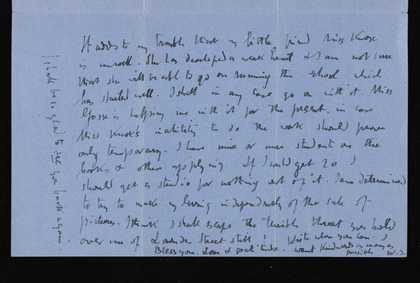 It adds to my trouble that my little friend Miss Knox
is unwell. She has developed a weak heart & I am not sure
that she will be able to go on running the school which
has started well. I shall in any case go on with it. Miss
Gosse is helping me with it for the present, in case
Miss Knox's inability to do the work should prove
only temporary. I have nine or ten students on the
books & others applying. If I could get 20 I
should get a studio for nothing out of it. I am determined
to try to make my living independently of the sale of
pictures. I think I shall escape the threat you hold
over me of Street still! Write when you can. I
want
I shall be so glad to see you back again.